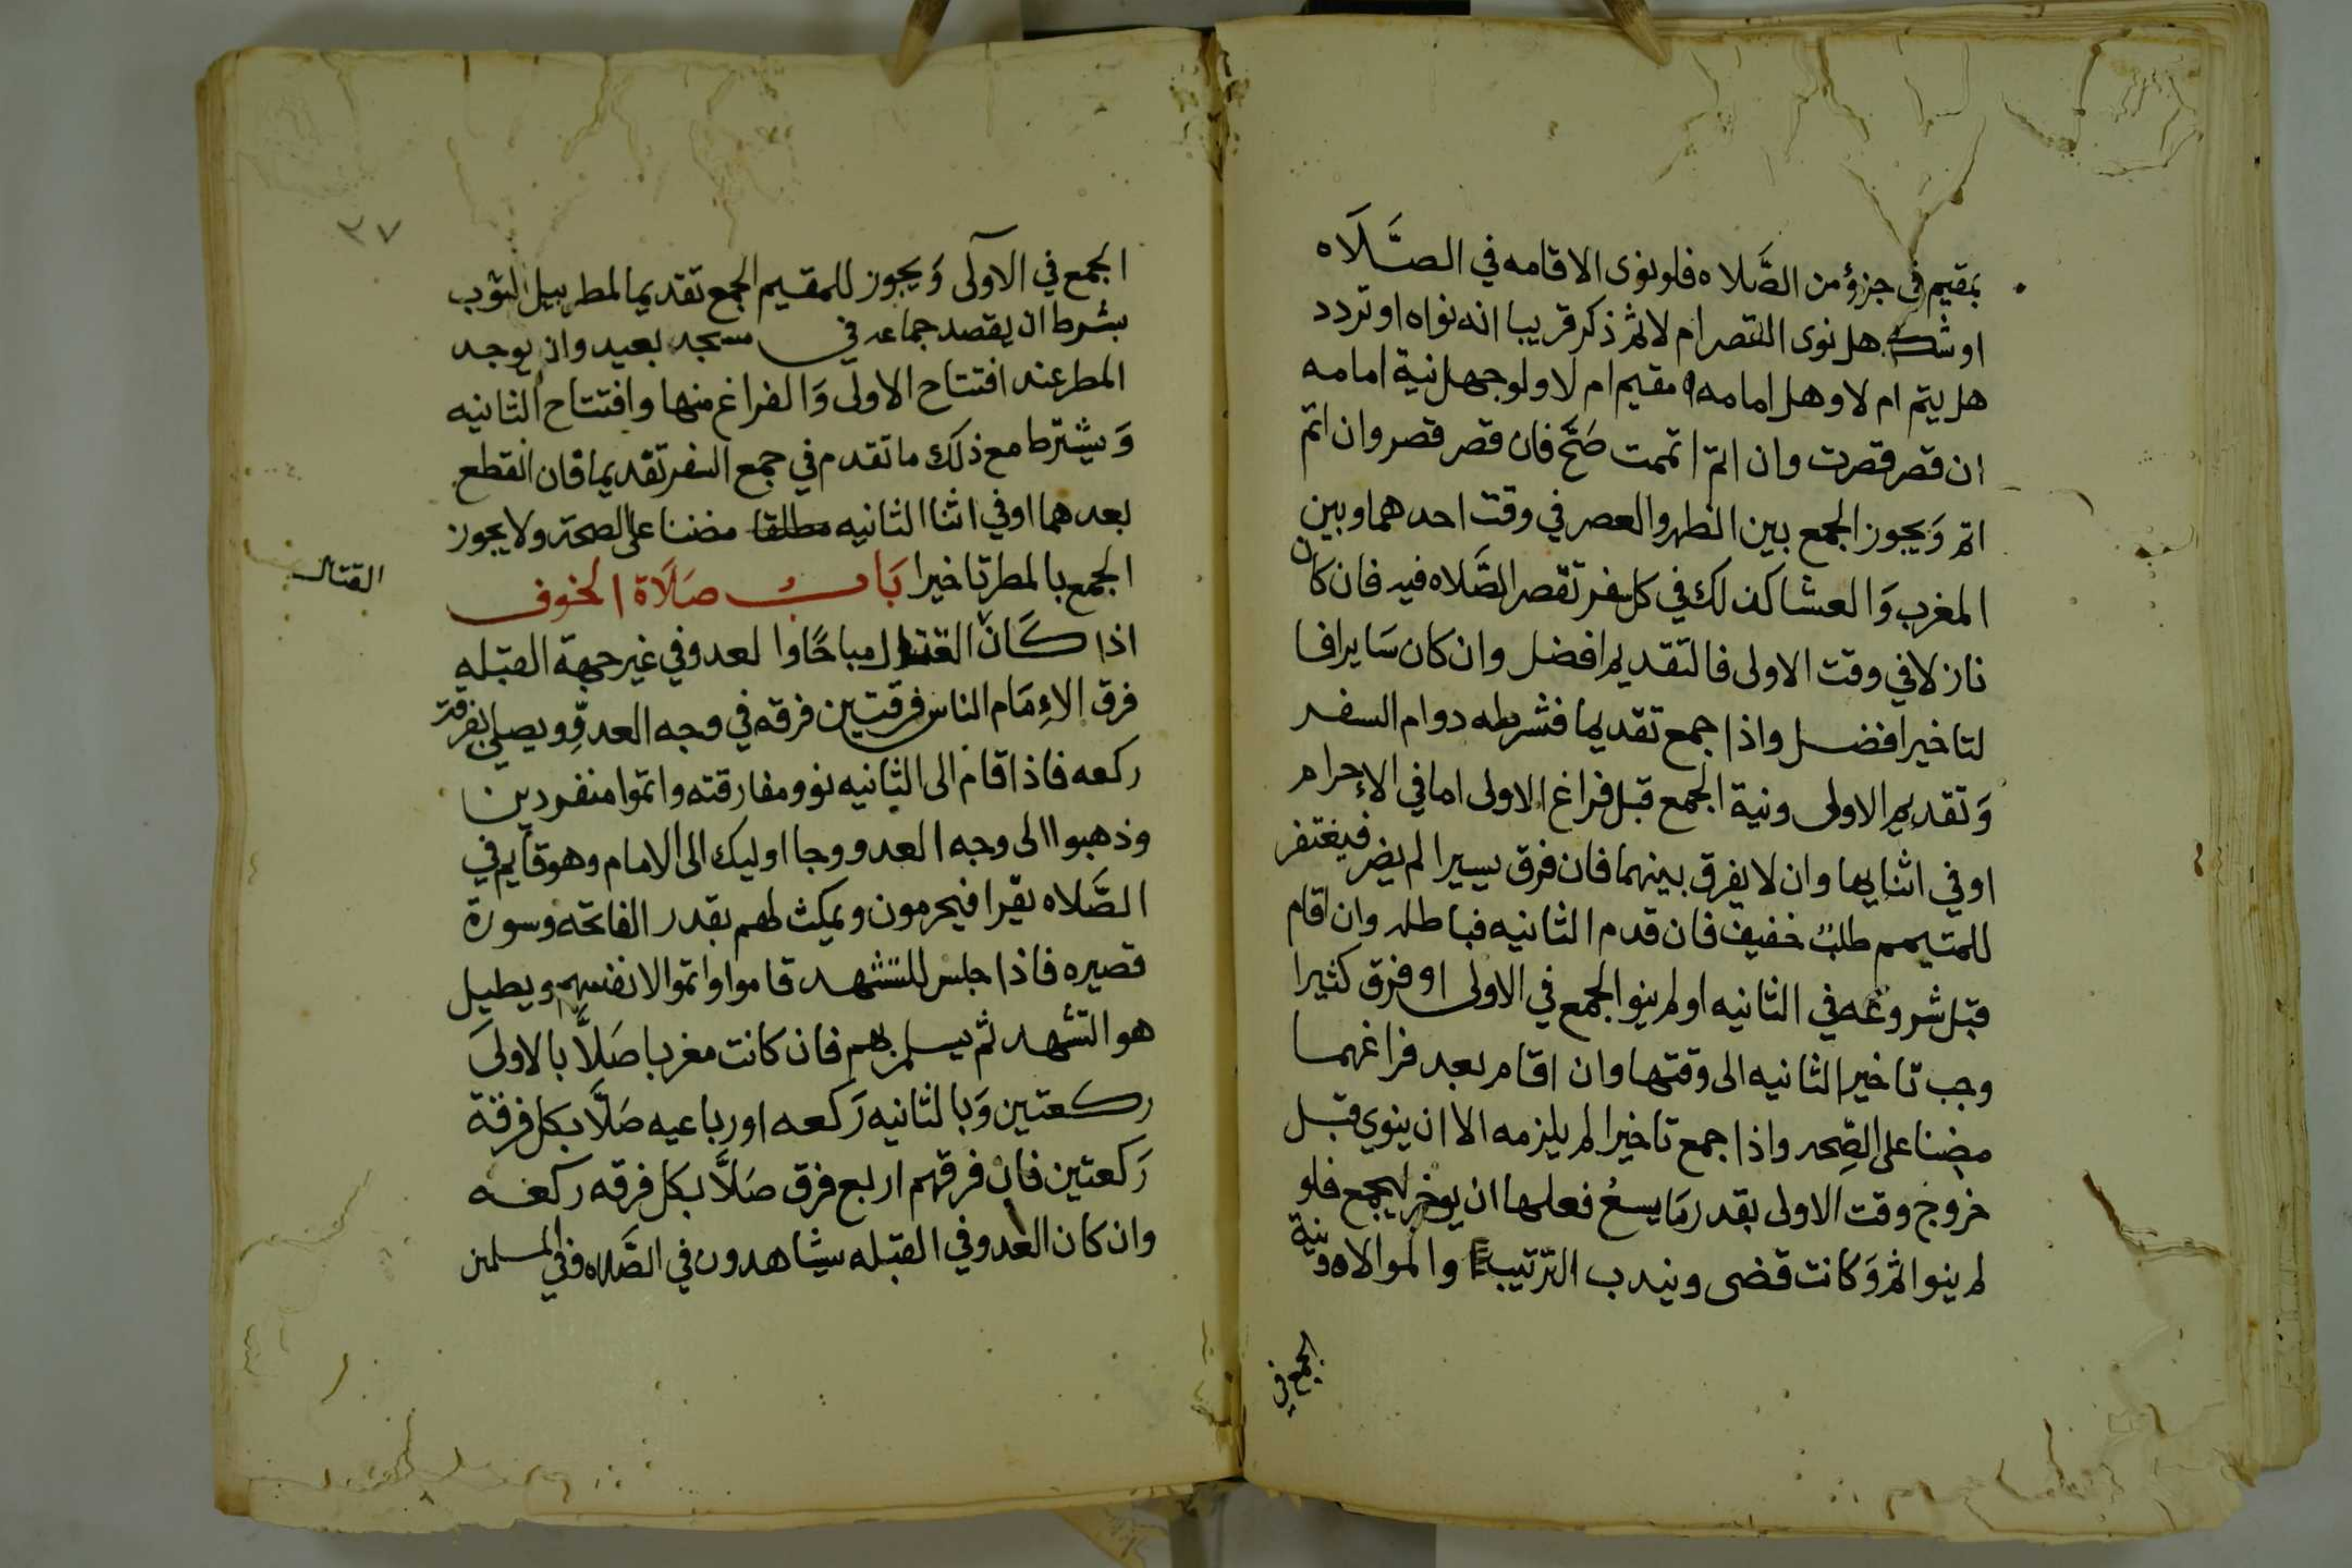 بمقيم في جزؤ من الصَّلاه فلو نوى الاقامه في الصَّلَاه
او شك هل نوى القصر ام لا ثم ذكر قريبا انه نواه او تردد
هل يتم ام لا وهل امامه مقيم ام لا ولو جهل نية امامه
ان قصر قصرت وان اتم اتممت صَحَّ فان قصر قصر وان اتم
اتم وَيجوز الجمع بين الظهر والعصر في وقت احدهما وبين
المغرب وَالعشا كذلك في كل سفر تقصر الصَّلاه فيه فان كان
نازلا في وقت الاولى فالتقديم افضل وان كان سَايرا فا
لتاخير افضل واذا جمع تقديما فشرطه دوام السفر
وَتقديم الاولى ونية الجمع قبل فراغ الاولى اما في الإحرام
او في اثنايها وان لا يفرق بينهما فان فرق يسيرا لم يضر فيغتفر
للمتيمم طلبٌ خفيف فان قدم الثانيه فباطله وان اقام
قبل شروعه في الثانيه او لم ينو الجمع في الاولى او فرق كثيرا
وجب تاخير الثانيه الى وقتها وان اقام بعد فراغهما
مضنا على الصِّحه واذا جمع تاخيرا لم يلزمه الا ان ينوي قبل
خروج وقت الاولى بقدر مَا يسعُ فعلها ان يوخر ليجمع فلو
لم ينو اثم وَكانت قضى ويندب الترتيب والموالاه ونية
الجمع في
٣٧
الجمع في الاولى وَيجوز للمقيم الجمع تقديما لمطر يبل الثوب
بشرط ان يقصد جماعه في مسجد بعيد وان يوجد
المطر عند افتتاح الاولى وَالفراغ منها وافتتاح الثانيه
وَيشترط مع ذلك ما تقدم في جمع السفر تقديما فان انقطع
بعدهما او في اثنا الثانيه مطلقا مضنا على الصحة ولا يجوز
الجمع بالمطر تاخيرا بَابُ صَلَاة الخوف
القتال
اذا كَانَ القتال مباحًا والعدو في غير جهة القبله
فرق الإمَام الناس فرقتين فرقه في وجه العدوِّ ويصلي بفرقة
ركعه فاذا قام الى الثانيه نوو مفارقته واتموا منفردين
وذهبوا الى وجه العدو وجا اوليك الى الامام وهو قايم في
الصَّلاه يقرا فيحرمون ويمكث لهم بقدر الفاتحة وسورة
قصيره فاذا جلس للتشهد قاموا واتموا لانفسهم ويطيل
هو التشهد ثم يسلم بهم فان كانت مغربا صَلَّا بالاولىَ
ركعتين وَبالثانيه رَكعه او رباعيه صَلَّا بكل فرقة
رَكعتين فان فرقهم اربع فرق صَلَّا بكل فرقه ركعه
وان كان العدو في القبله يشاهدون في الصَّلاه وفي المسلمين